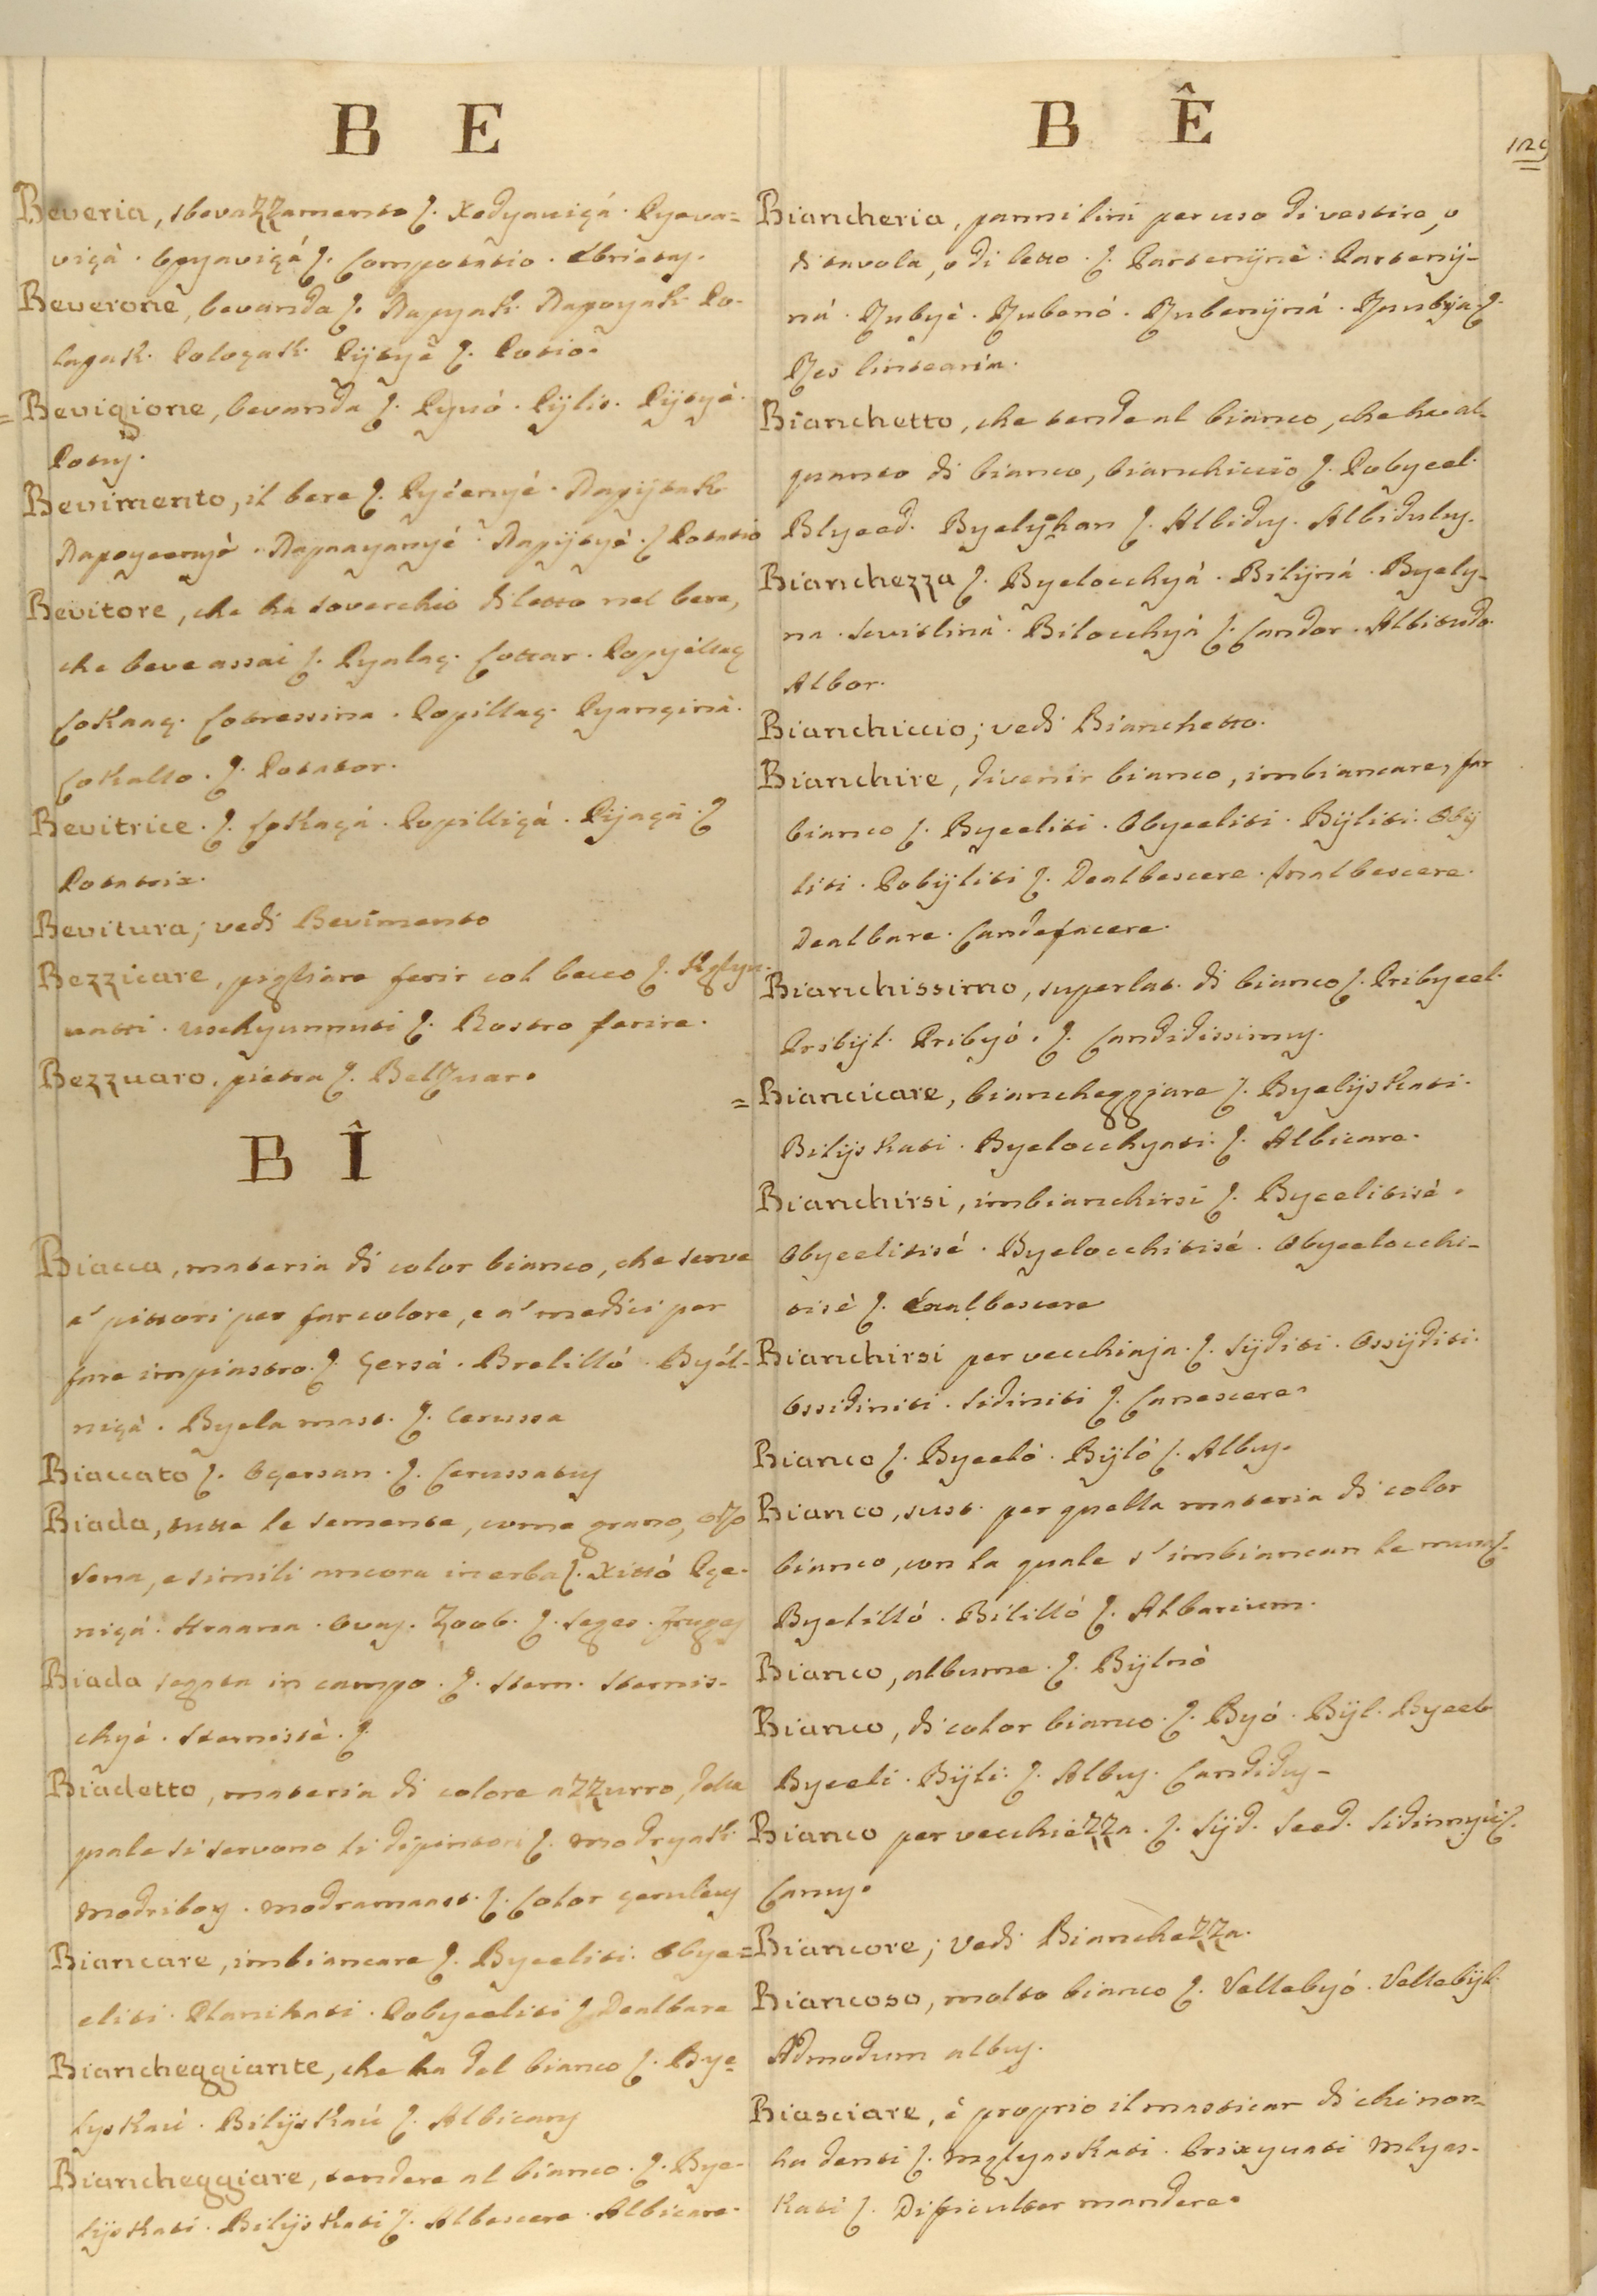 B E
Beveria, sbevazzamento ſ. Xedyaviçá. Pyeva=
viçà. Opyaviçá ſ. Compotatio. Ebrietas.
Beverone, bevanda ſ. Napyak. Napoyak. Po-
lagak. Pologak. Pijtyê ſ. Potio.
= Bevigione, bevanda ſ. Pyvó. Pijlis. Pijtyè.
Potus.
Bevimento, il bere ſ. Pyéenyé. Napijtak
Napoyeenyè. Napaayanyé. Napijtyè. ſ Potatio
Bevitore, che ha soverchio diletto nel bere,
che beve assai ſ. Pyalaç. Cottar. Popyéllaç
Lokaaç. Lotressina. Popillaç. Pyançinà.
Lokallo. ſ. Potator.
Bevitrice. ſ. Lokaçá. Popilliçá. Pijaçá. ſ
Potatrix.
Bevitura; vedi Bevimento
Bezzicare, pigliare ferir col becco ſ. Kglyu-
vatti. Uschyunnuti ſ. Rostro ferire.
Bezzuaro, pietra ſ. Belzuar.
B Î
Biacca, materia di color bianco, che serve
a' pittori per far colore, e a' medici per
fare impiastro. ſ. Gersá. Brelilló. Byél-
niçà. Byela mast. ſ. Cerussa
Biaccato ſ. Ogersan. ſ. Cerussatus
Biada, tutte le semente, come grano, orzo
Vena, e simili ancora in erba ſ. Xittó Pçe-
niçá. Hraana. Ovas. Zoob. ſ. Seges. Fruges
Biada segata in campo. ſ. Stern. Sternis-
chyé. Sternissè. ſ.
Biadetto, materia di colore azzurro, della
quale si servono li dipintori ſ. Modryak
Modriboy. Modramaast. ſ. Color çeruleus
Biancare, imbiancare ſ. Byeeliti. Obye=
eliti. Planikati. Pobyeeliti ſ Dealbare
Biancheggiante, che ha del bianco ſ. Bye=
lyskaú. Bilijskaú ſ. Albicans
Biancheggiare, tendere al bianco. ſ. Bye-
lijskati. Bilijskati ſ. Albescere. Albicare.
B Ê
129
Biancheria, panni lini per uso di vestire, o
di tavola, o di letto. ſ. Partenijnè. Partenij-
ná. Rubyè. Rubenó. Rubenijná. Ruubija. ſ.
Res lintearia.
Bianchetto, che tende al bianco, che ha al-
quanto di bianco, bianchiccio ſ. Pobyeel.
Blyeed. Byelyhan ſ. Albidus. Albidulus.
Bianchezza ſ. Byelocchyá. Bilijná. Byely-
na. Svitlinà. Bilocchyà ſ. Candor. Albitudo.
Albor.
Bianchiccio; vedi Bianchetto.
Bianchire, divenir bianco, imbiancare, far
bianco ſ. Byeeliti. Obyeeliti. Bijliti. Obij
liti. Pobijliti ſ. Dealbescere. Inalbescere.
Dealbare. Candefacere.
Bianchissimo, superlat. di bianco ſ. Pribyeel.
Pribijl. Pribyó. ſ. Candidissimus.
= Biancicare, biancheggiare ſ. Byelijskati.
Bilijskati. Byelocchyati. ſ. Albicare.
Bianchirsi, imbianchirsi ſ. Byeelitisè.
Obyeelitisé. Byelocchitisé. Obyeelocchi-
tisè ſ. Exalbescere
Bianchirsi per vecchiaja. ſ. Sijditi. Ossijditi.
Ossidiniti. Sidiniti ſ. Canescere.
Bianco ſ. Byeeló. Bijló ſ. Albus.
Bianco, sust. per quella materia di color
bianco, con la quale s'imbiancan le mura ſ.
Byelilló. Bililló ſ. Albarium.
Bianco, albume. ſ. Bijlnò
Bianco, di color bianco. ſ. Byó. Bijl. Byeel.
Byeeli. Bijli. ſ. Albus. Candidus-
Bianco per vecchiezza. ſ. Sijd. Seed. Sidinnyú ſ.
Canus.
= Biancore; vedi Bianchezza.
Biancoso, molto bianco ſ. Vellebyó. Vellebijl.
Admodum albus.
Biasciare, è proprio il masticar di chi non-
ha denti ſ. Mglyaskati. Orsixyuati Mlyas-
kati ſ. Dificulter mandere.